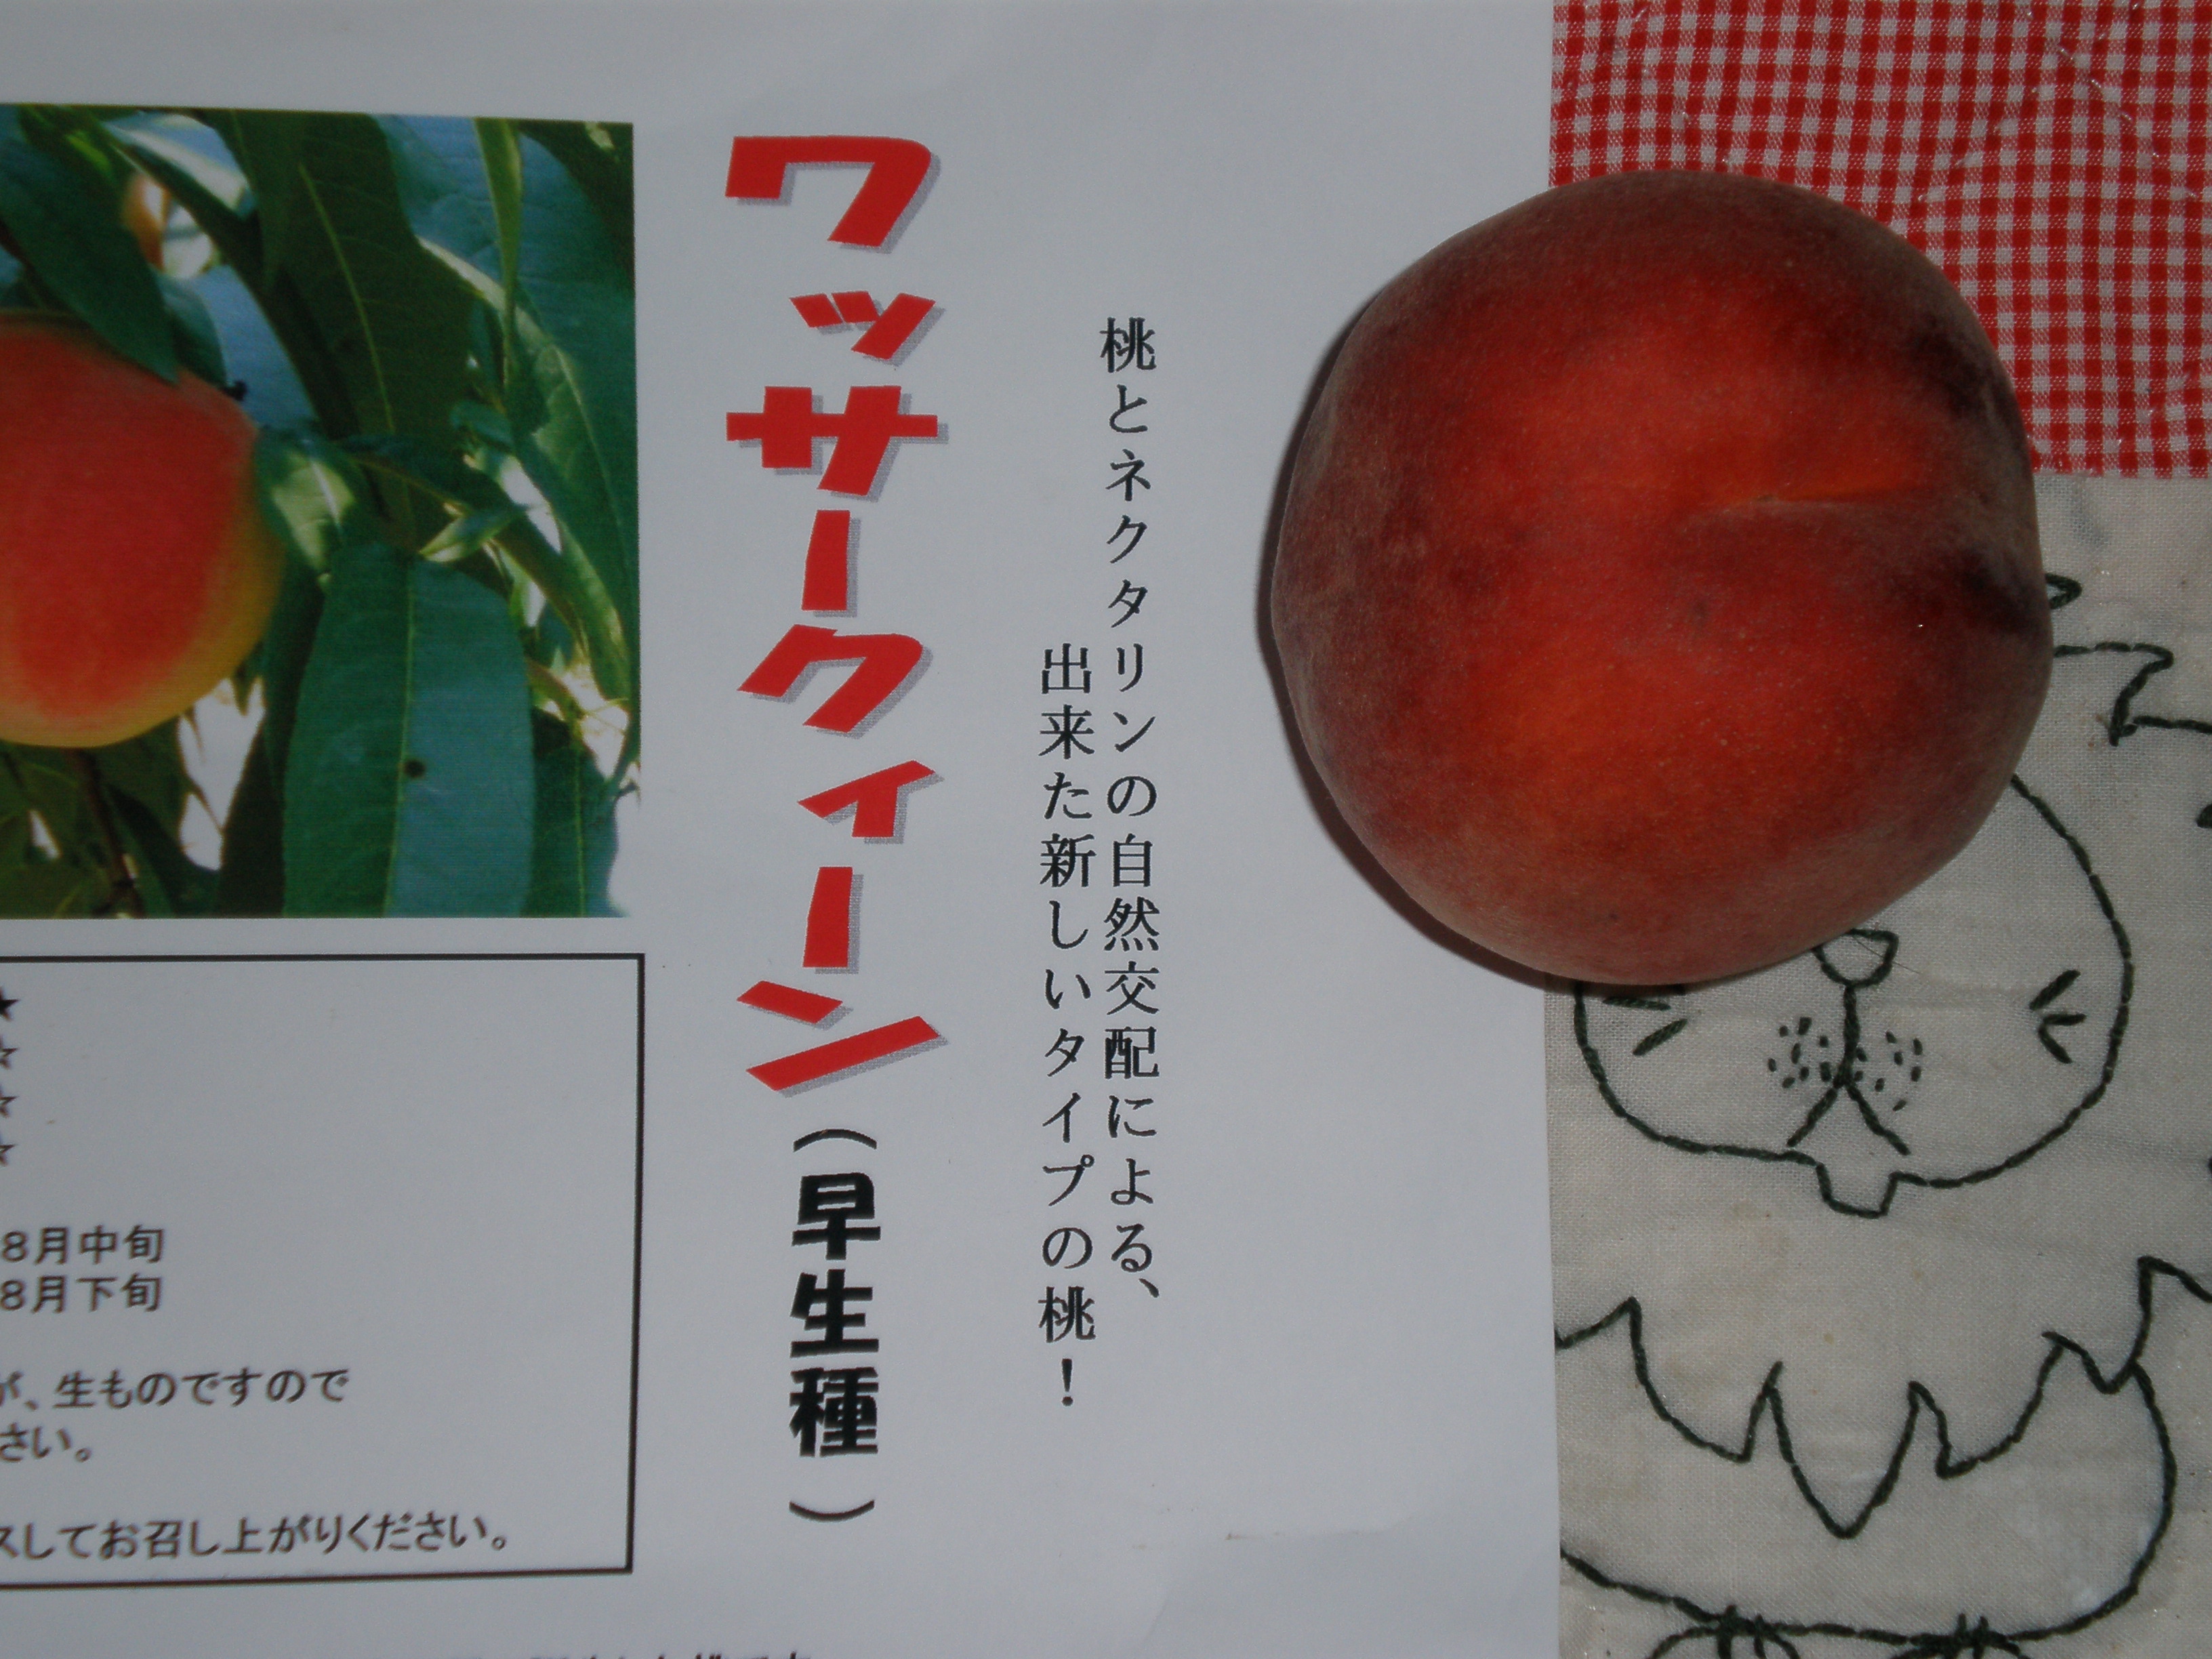 桃とネクタリンの自然交配による、
出来た新しいタイプの桃！
ワッサークィーン（早生種）
★
☆
☆
☆
8月中旬
8月下旬
が、生ものですので
さい。
スしてお召し上がりください。